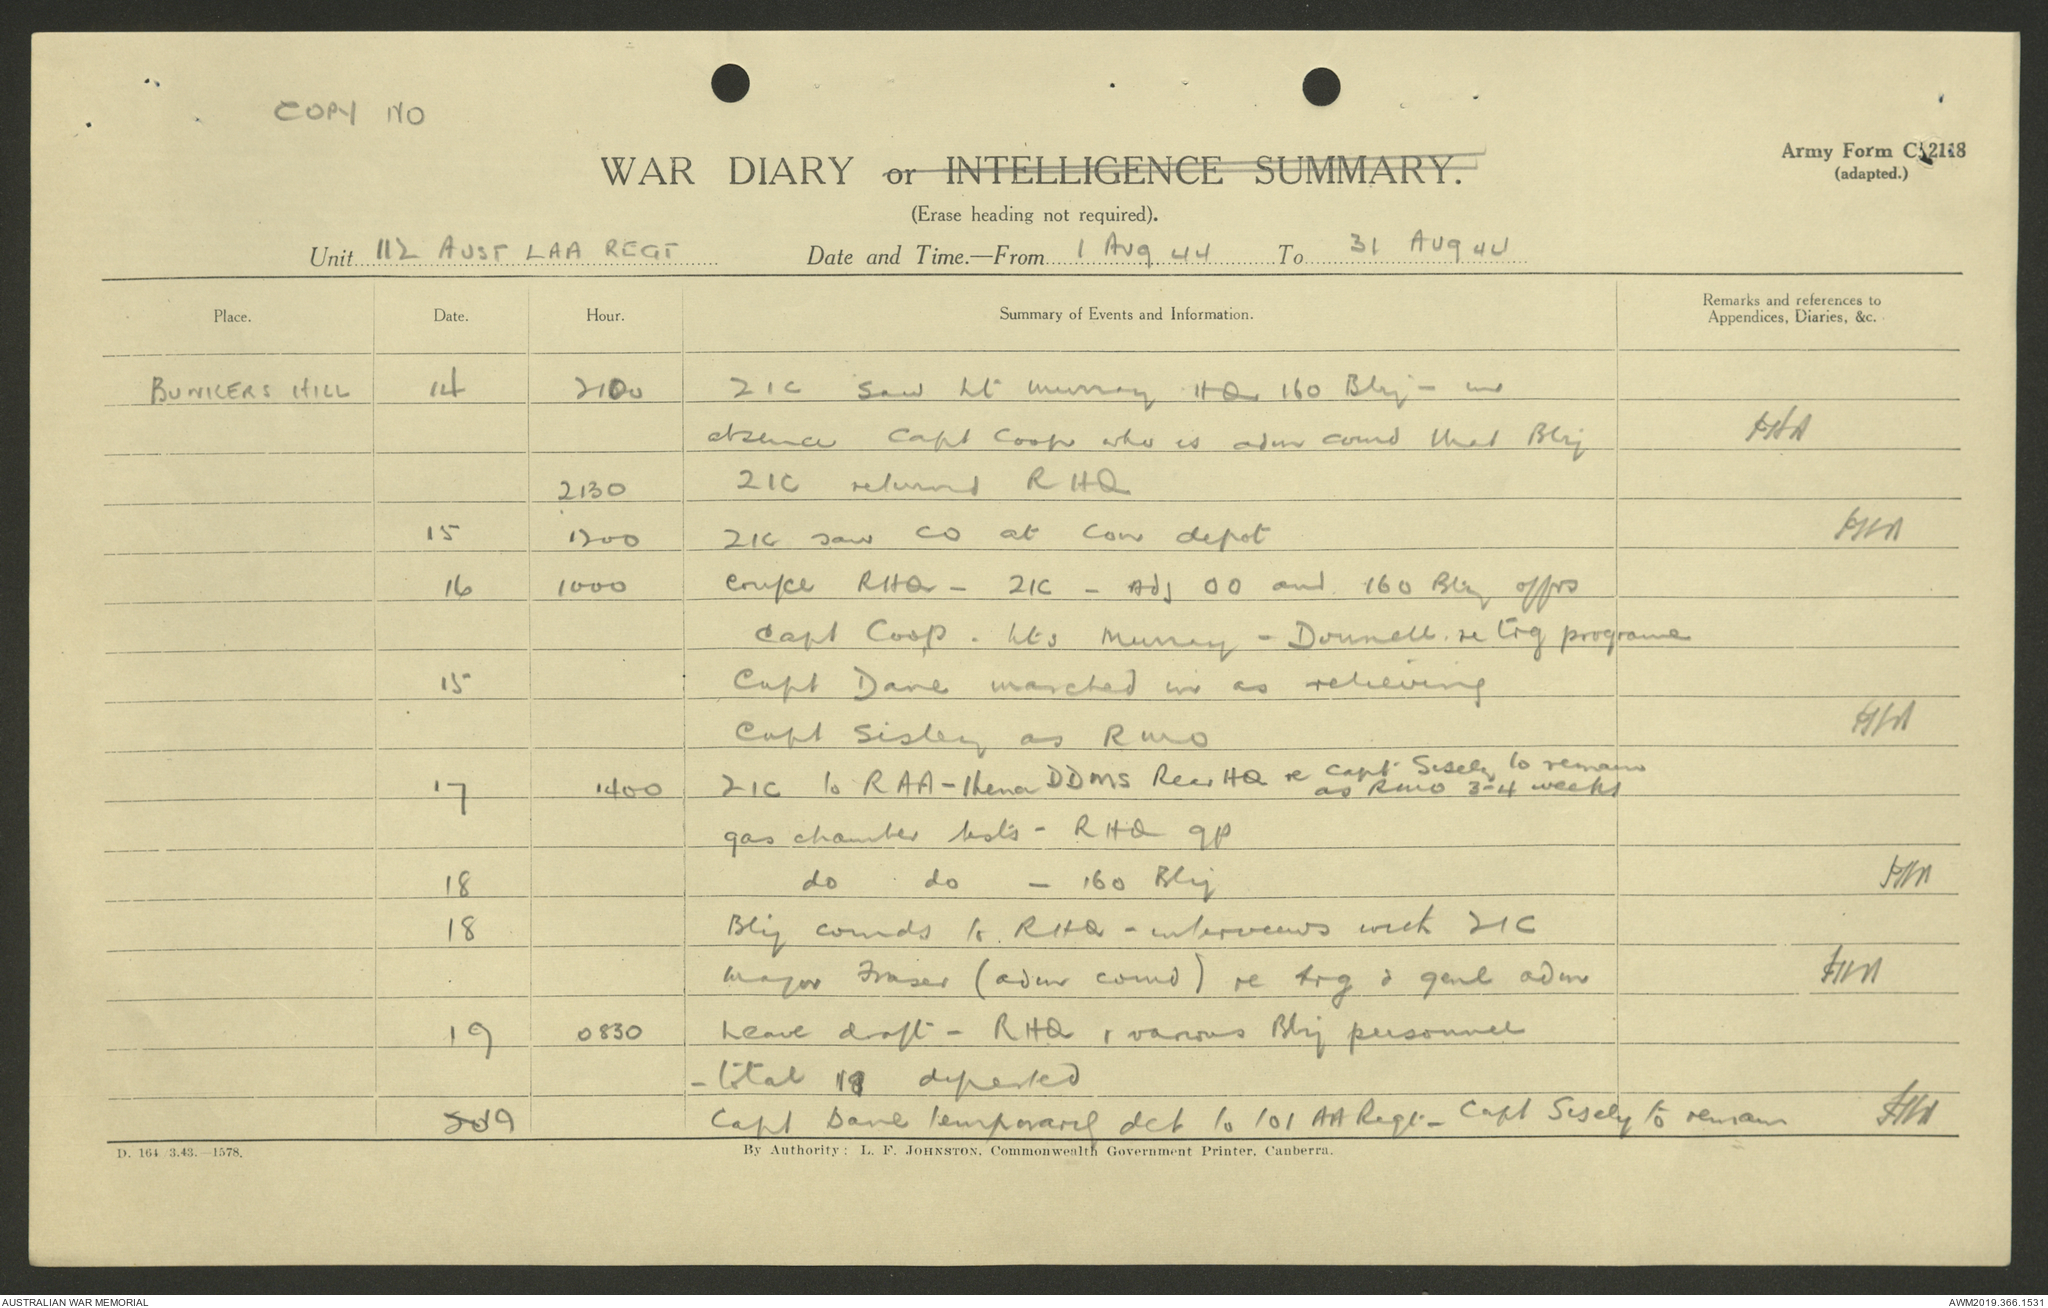 COPY NO
WAR DIARY or INTELLIGENCE SUMMARY.
Army Form C. 2118
(adapted.)
(Erase heading not required).
Unit 112 AUST LAA REGT Date and Time.—From 1 Aug 44 To 31 Aug 44
Place. Date. Hour. Summary of Events and Information. Remarks and references to Appendices, Diaries, &c.
BUNKERS HILL 14 2100 2IC saw Lt Murray HQ 160 Bty - in
absence Capt Coop who is adm comd that Bty
2130 2IC returned RHQ
15 1200 2IC saw CO at Con depot
16 1000 Confce RHQ - 2IC - Adj OO and 160 Bty offrs
Capt Coop. Lts Murray - Donnell re trg programe
15 Capt Dane marched in as relieving
Capt Sisley as RMO
17 1400 2IC to RAA - thence DDMS Rear HQ re Capt Sisely to remain
as RMO 3-4 weeks
gas chamber tests - RHQ gp
18 do do - 160 Bty
18 Bty comds to RHQ - interviews with 2IC
Major Fraser (adm comd) re trg & genl adm
19 0830 Leave draft - RHQ & various Bty personnel
- total departed
19 Capt Dane temporary det to 101 AA Regt - Capt Sisely to remain
D. 164 3.43.—1578.
By Authority: L. F. JOHNSTON, Commonwealth Government Printer, Canberra.
AUSTRALIAN WAR MEMORIAL
AWM2019.366.1531